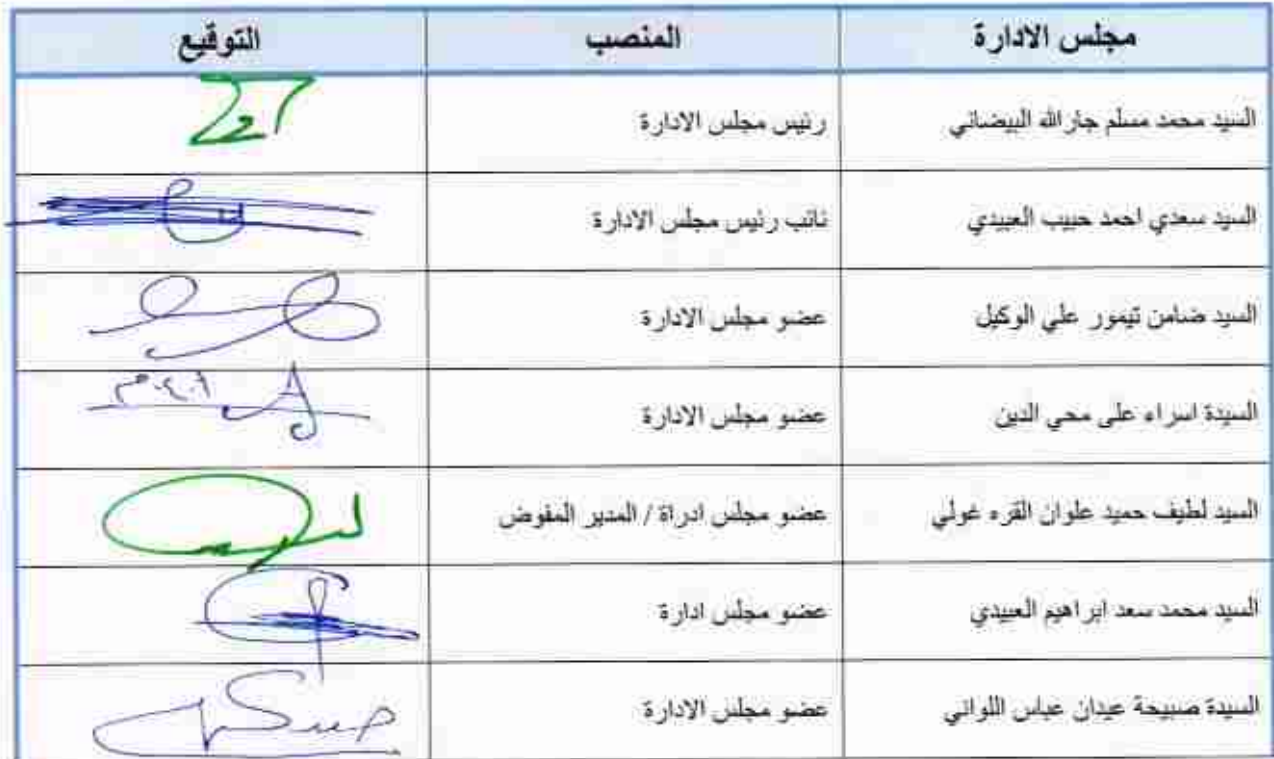 مجلس الادارة المنصب التوقيع
السيد محمد مسلم جارالله البيضاني رئيس مجلس الادارة
السيد سعدي احمد حبيب العبيدي نائب رئيس مجلس الادارة
السيد ضامن تيمور علي الوكيل عضو مجلس الادارة
السيدة اسراء على محي الدين عضو مجلس الادارة
السيد لطيف حميد علوان القره غولي عضو مجلس ادراة / المدير المفوض
السيد محمد سعد ابراهيم العبيدي عضو مجلس ادارة
السيدة صبيحة عيدان عباس اللواني عضو مجلس الادارة